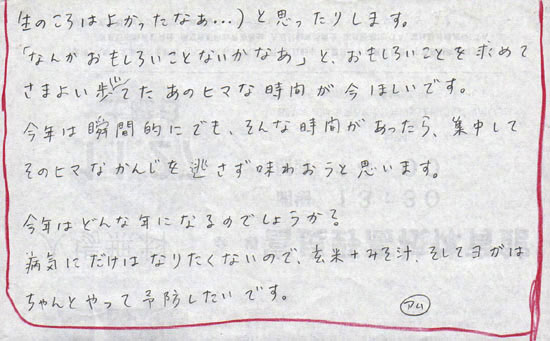 生のころはよかったなぁ…)と思ったりします。
「なんかおもしろいことないかなあ」と、おもしろいことを求めて
さまよい歩いてた あのヒマな時間が今ほしいです。
今年は瞬間的にでも、そんな時間があったら、集中して
そのヒマなかんじを逃さず味わおうと思います。
今年はどんな年になるのでしょうか?
病気にだけはなりたくないので、玄米+みそ汁、そしてヨガは
ちゃんとやって予防したいです。
アム
13:30